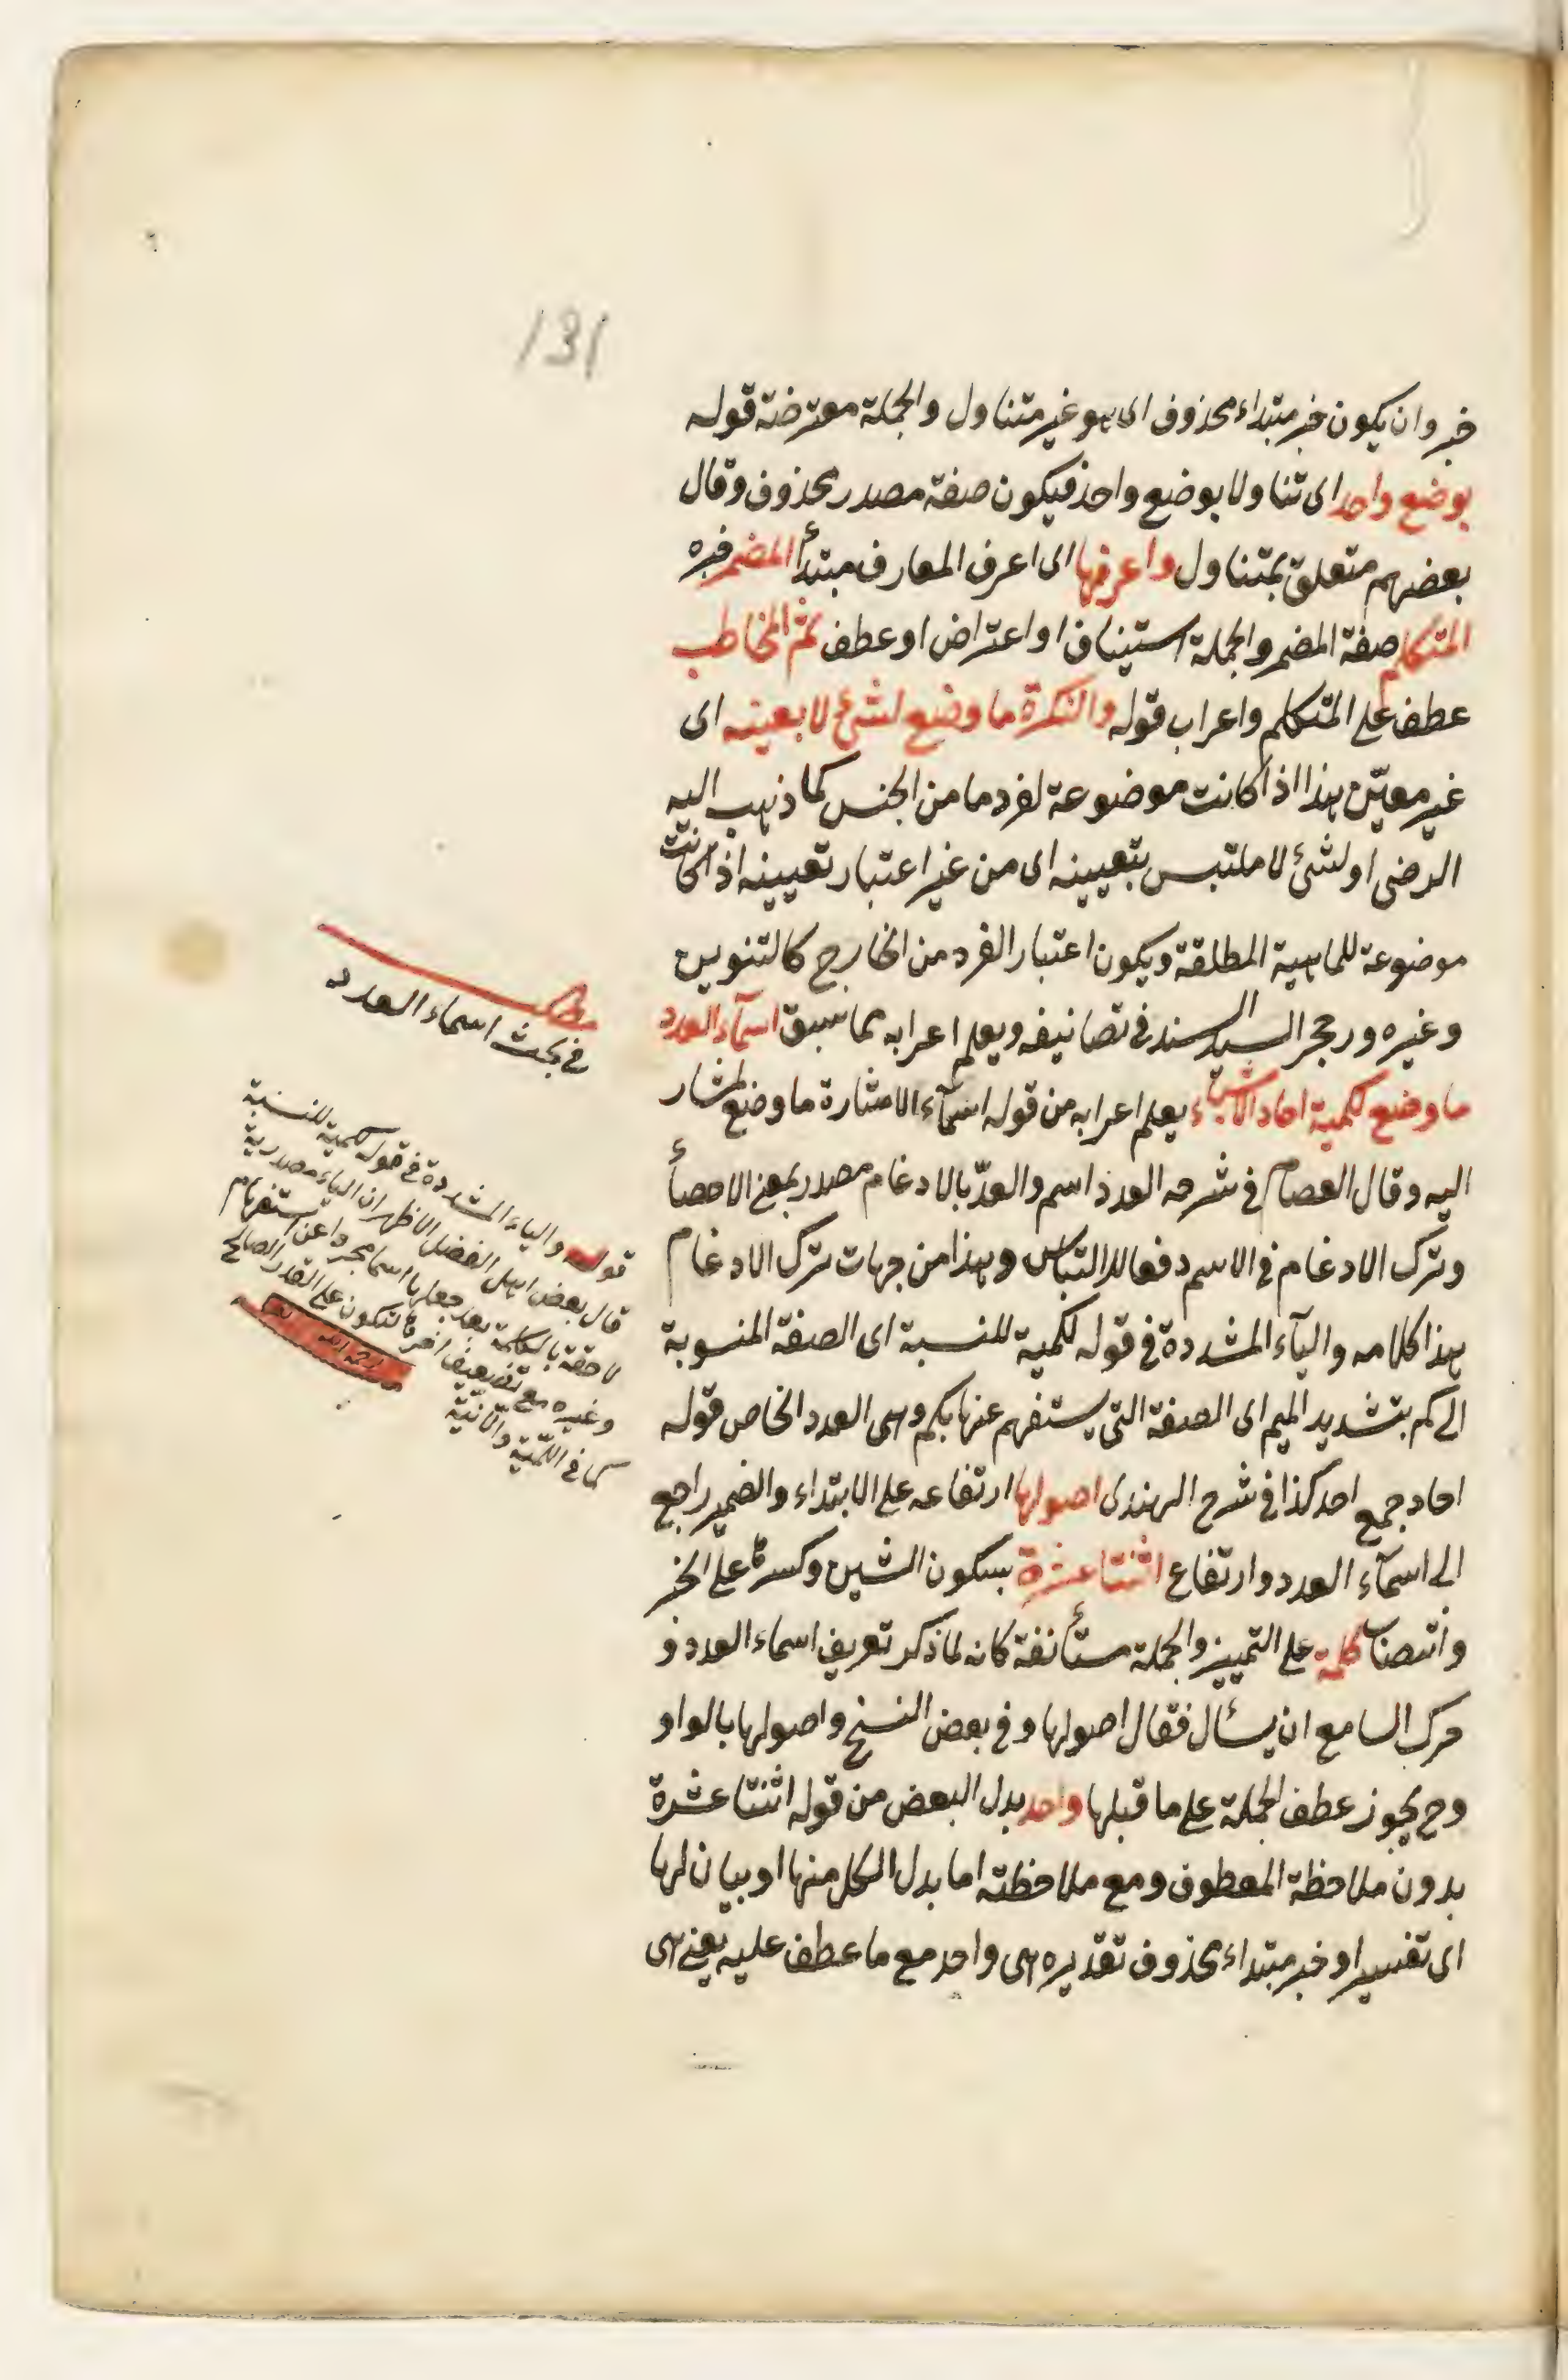 131
خبر وان يكون خبر مبتداء محذوف اى هو غير متناول والجملة معترضة قوله
بوضع واحد اى تناولا بوضع واحد فيكون صفة مصدر محذوف وقال
بعضهم متعلق بمتناول واعرفها اى اعرف المعارف مبتدأ المضمر خبره
المتكلم صفة المضمر والجملة استيناف او اعتراض او عطف ثم المخاطب
عطف على المتكلم واعراب قوله والنكرة ما وضع لشئ لا بعينه اى
غير معيّن هذا اذا كانت موضوعة لفرد ما من الجنس كما ذهب اليه
الرضى او لشئ لا ملتبس بتعيينه اى من غير اعتبار تعيينه اذا كانت
موضوعة للماهية المطلقة ويكون اعتبار الفرد من الخارج كالتنوين
وغيره ورجحه السيد السند فى تصانيفه ويعلم اعرابه مما سبق اسمآء العدد
ما وضع لكمية احاد الاشياء يعلم اعرابه من قوله اسمآء الاشارة ما وضع لمشار
اليه وقال العصام فى شرحه العدد اسم والعدّ بالادغام مصدر بمعنى الاحصأ
وترك الادغام فى الاسم دفعا للالتباس وهذا من جهات ترك الادغام
هذا كلامه واليآء المشددة فى قوله لكمية للنسبة اى الصفة المنسوبة
الى كم بتشديد الميم اى الصفة التى يستفهم عنها بكم وهى العدد الخاص قوله
احاد جمع احد كذا فى شرح الهندى اصولها ارتفاعه على الابتداء والضمير راجع
الى اسمآء العدد وارتفاع اثنتا عشرة بسكون الشين وكسرها على الخبر
وانتصاب كلمة على التمييز والجملة مستأنفة كانه لما ذكر تعريف اسماء العدد و
حرك السامع ان يسأل فقال اصولها وفى بعض النسخ واصولها بالواو
وح يجوز عطف الجملة على ما قبلها واحد بدل البعض من قوله اثنتا عشرة
بدون ملاحظة المعطوف ومع ملاحظته اما بدل الكل منها او بيان لها
اى تفسير او خبر مبتداء محذوف تقديره هى واحد مع ما عطف عليه يعنى هى
مطلب
فى بحث اسماء العدد
قوله والياء المشددة فى قوله لكمية للنسبة
قال بعض اهل الفضل الاظهر ان الياء مصدرية
لاحقة بالكلمة بعد جعلها اسما مجردا عن استفهام
وغيره مع تضعيف اخرها لتكون على القدر الصالح
كما فى اللمّية والانّيّة
رحمه الله